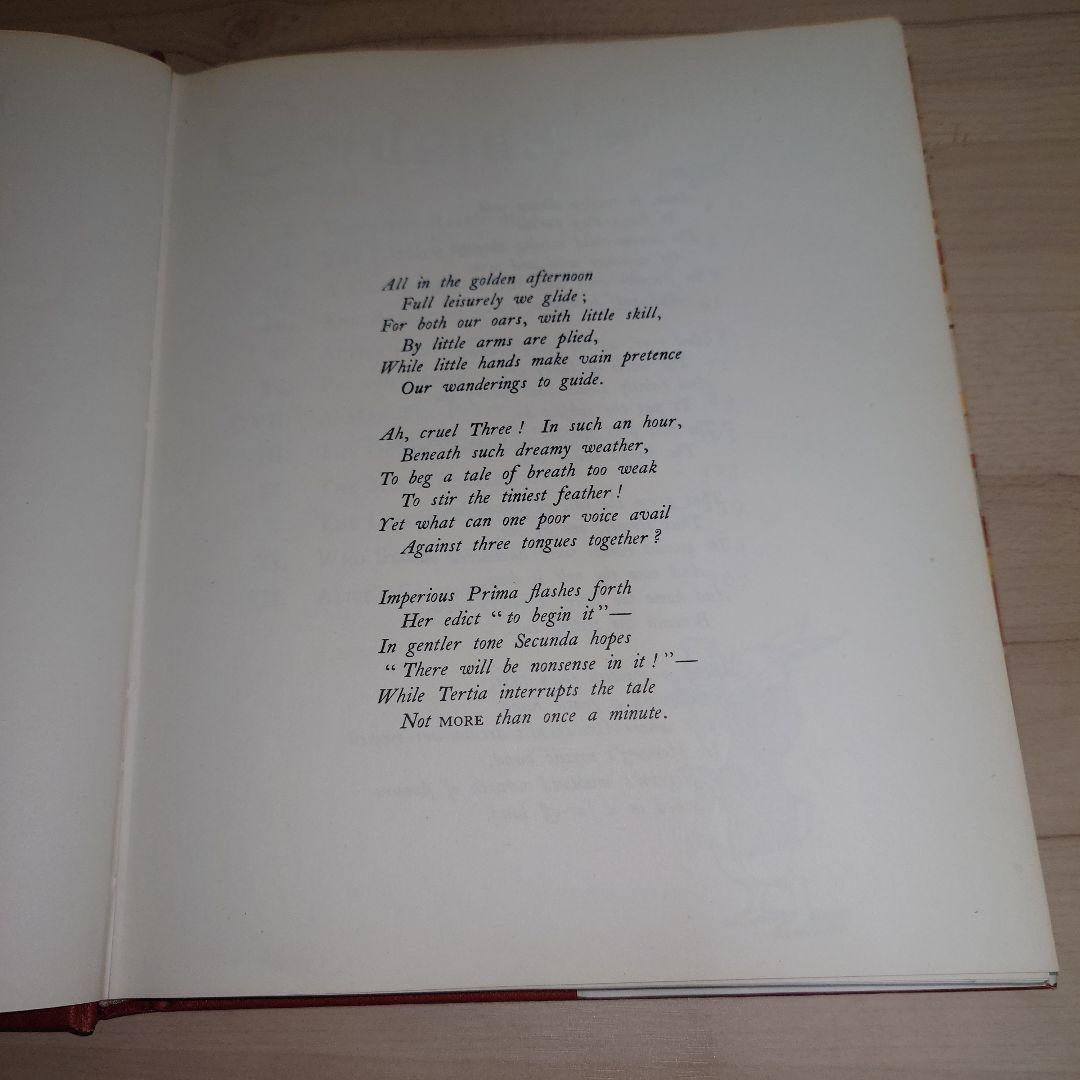 All in the golden afternoon
Full leisurely we glide ;
For both our oars, with little skill,
By little arms are plied,
While little hands make vain pretence
Our wanderings to guide.
Ah, cruel Three ! In such an hour,
Beneath such dreamy weather,
To beg a tale of breath too weak
To stir the tiniest feather !
Yet what can one poor voice avail
Against three tongues together ?
Imperious Prima flashes forth
Her edict “ to begin it ”—
In gentler tone Secunda hopes
“ There will be nonsense in it ! ”—
While Tertia interrupts the tale
Not MORE than once a minute.